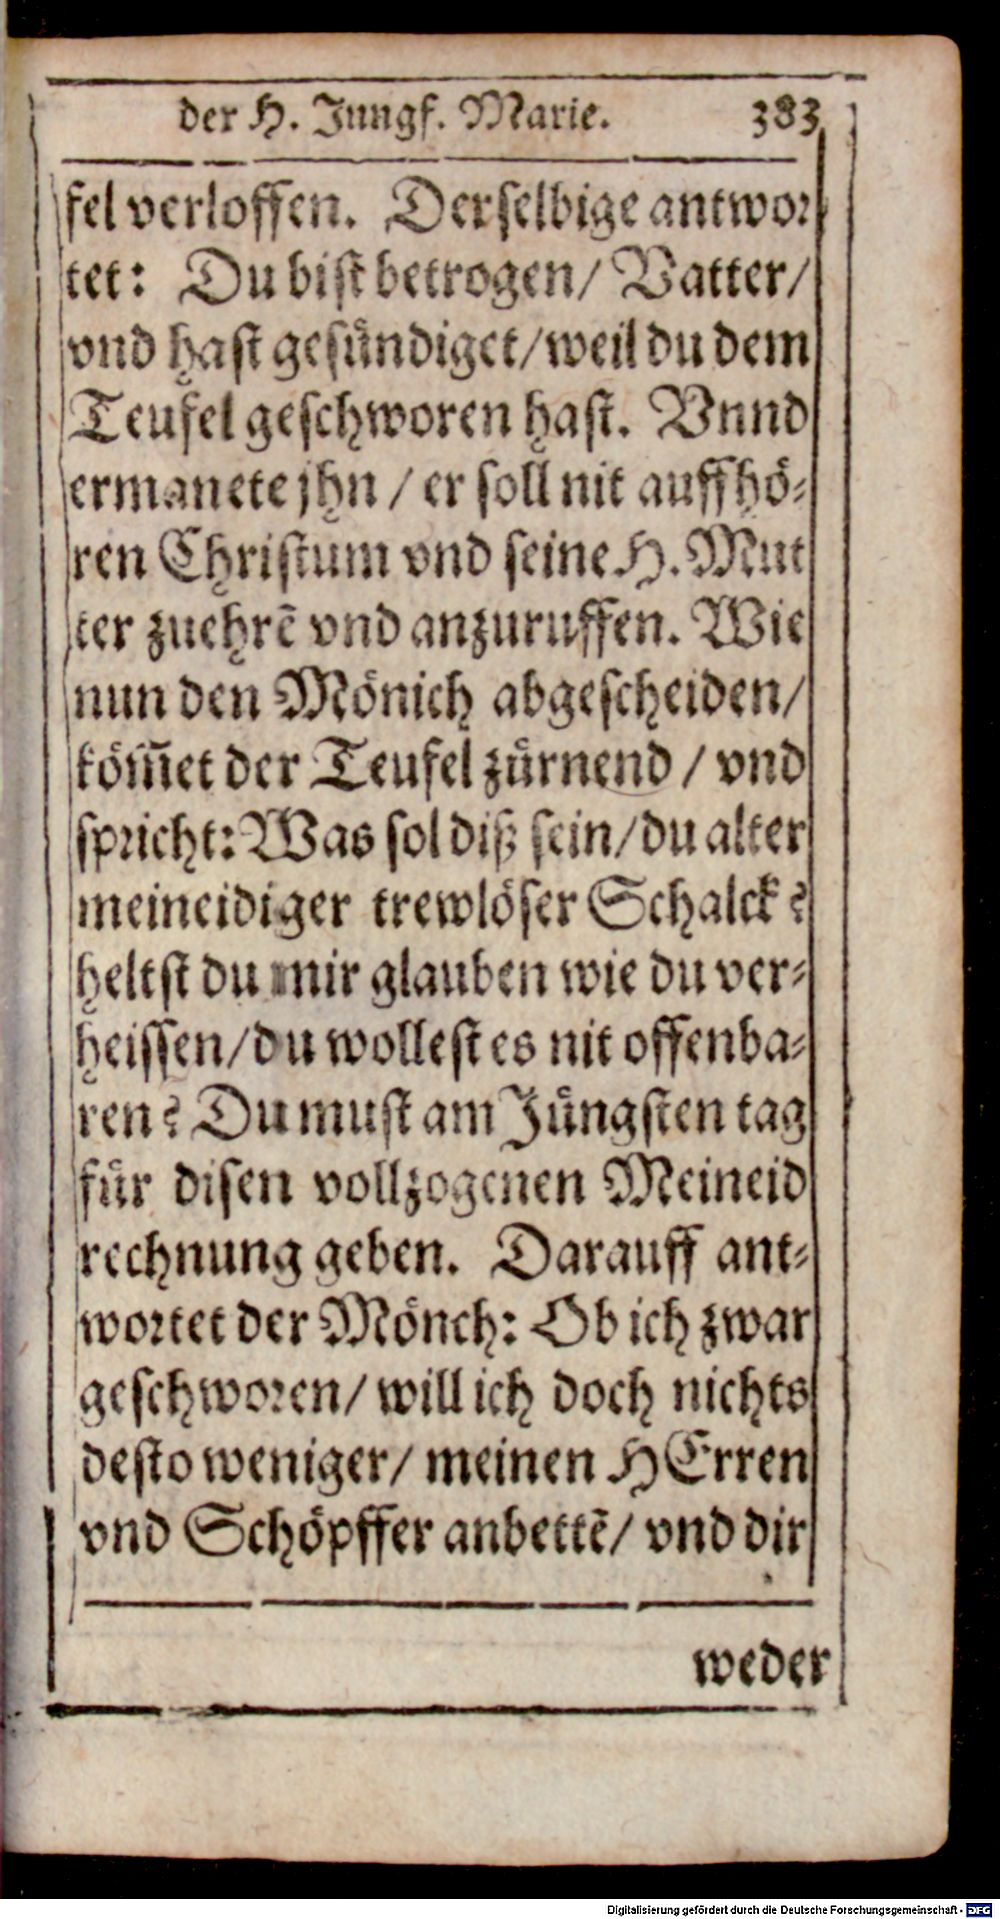 der H. Jungf. Marie. 383
fel verloffen. Derselbige antwor
tet: Du bist betrogen/ Vatter/
vnd hast gesündiget/ weil du dem
Teufel geschworen hast. Vnnd
ermanete jhn / er soll nit auffhö-
ren Christum vnd seine H. Mut
ter zuehrē vnd anzuruffen. Wie
nun den Mönich abgescheiden/
köm̄et der Teufel zürnend / vnd
spricht: Was sol diß sein/ du alter
meineidiger trewlöser Schalck?
heltst du mir glauben wie du ver-
heissen/ du wollest es nit offenba-
ren? Du must am Jüngsten tag
für disen vollzogenen Meineid
rechnung geben. Darauff ant-
wortet der Mönch: Ob ich zwar
geschworen/ will ich doch nichts
desto weniger/ meinen HErren
vnd Schöpffer anbettē/ vnd dir
weder
Digitalisierung gefördert durch die Deutsche Forschungsgemeinschaft - DFG